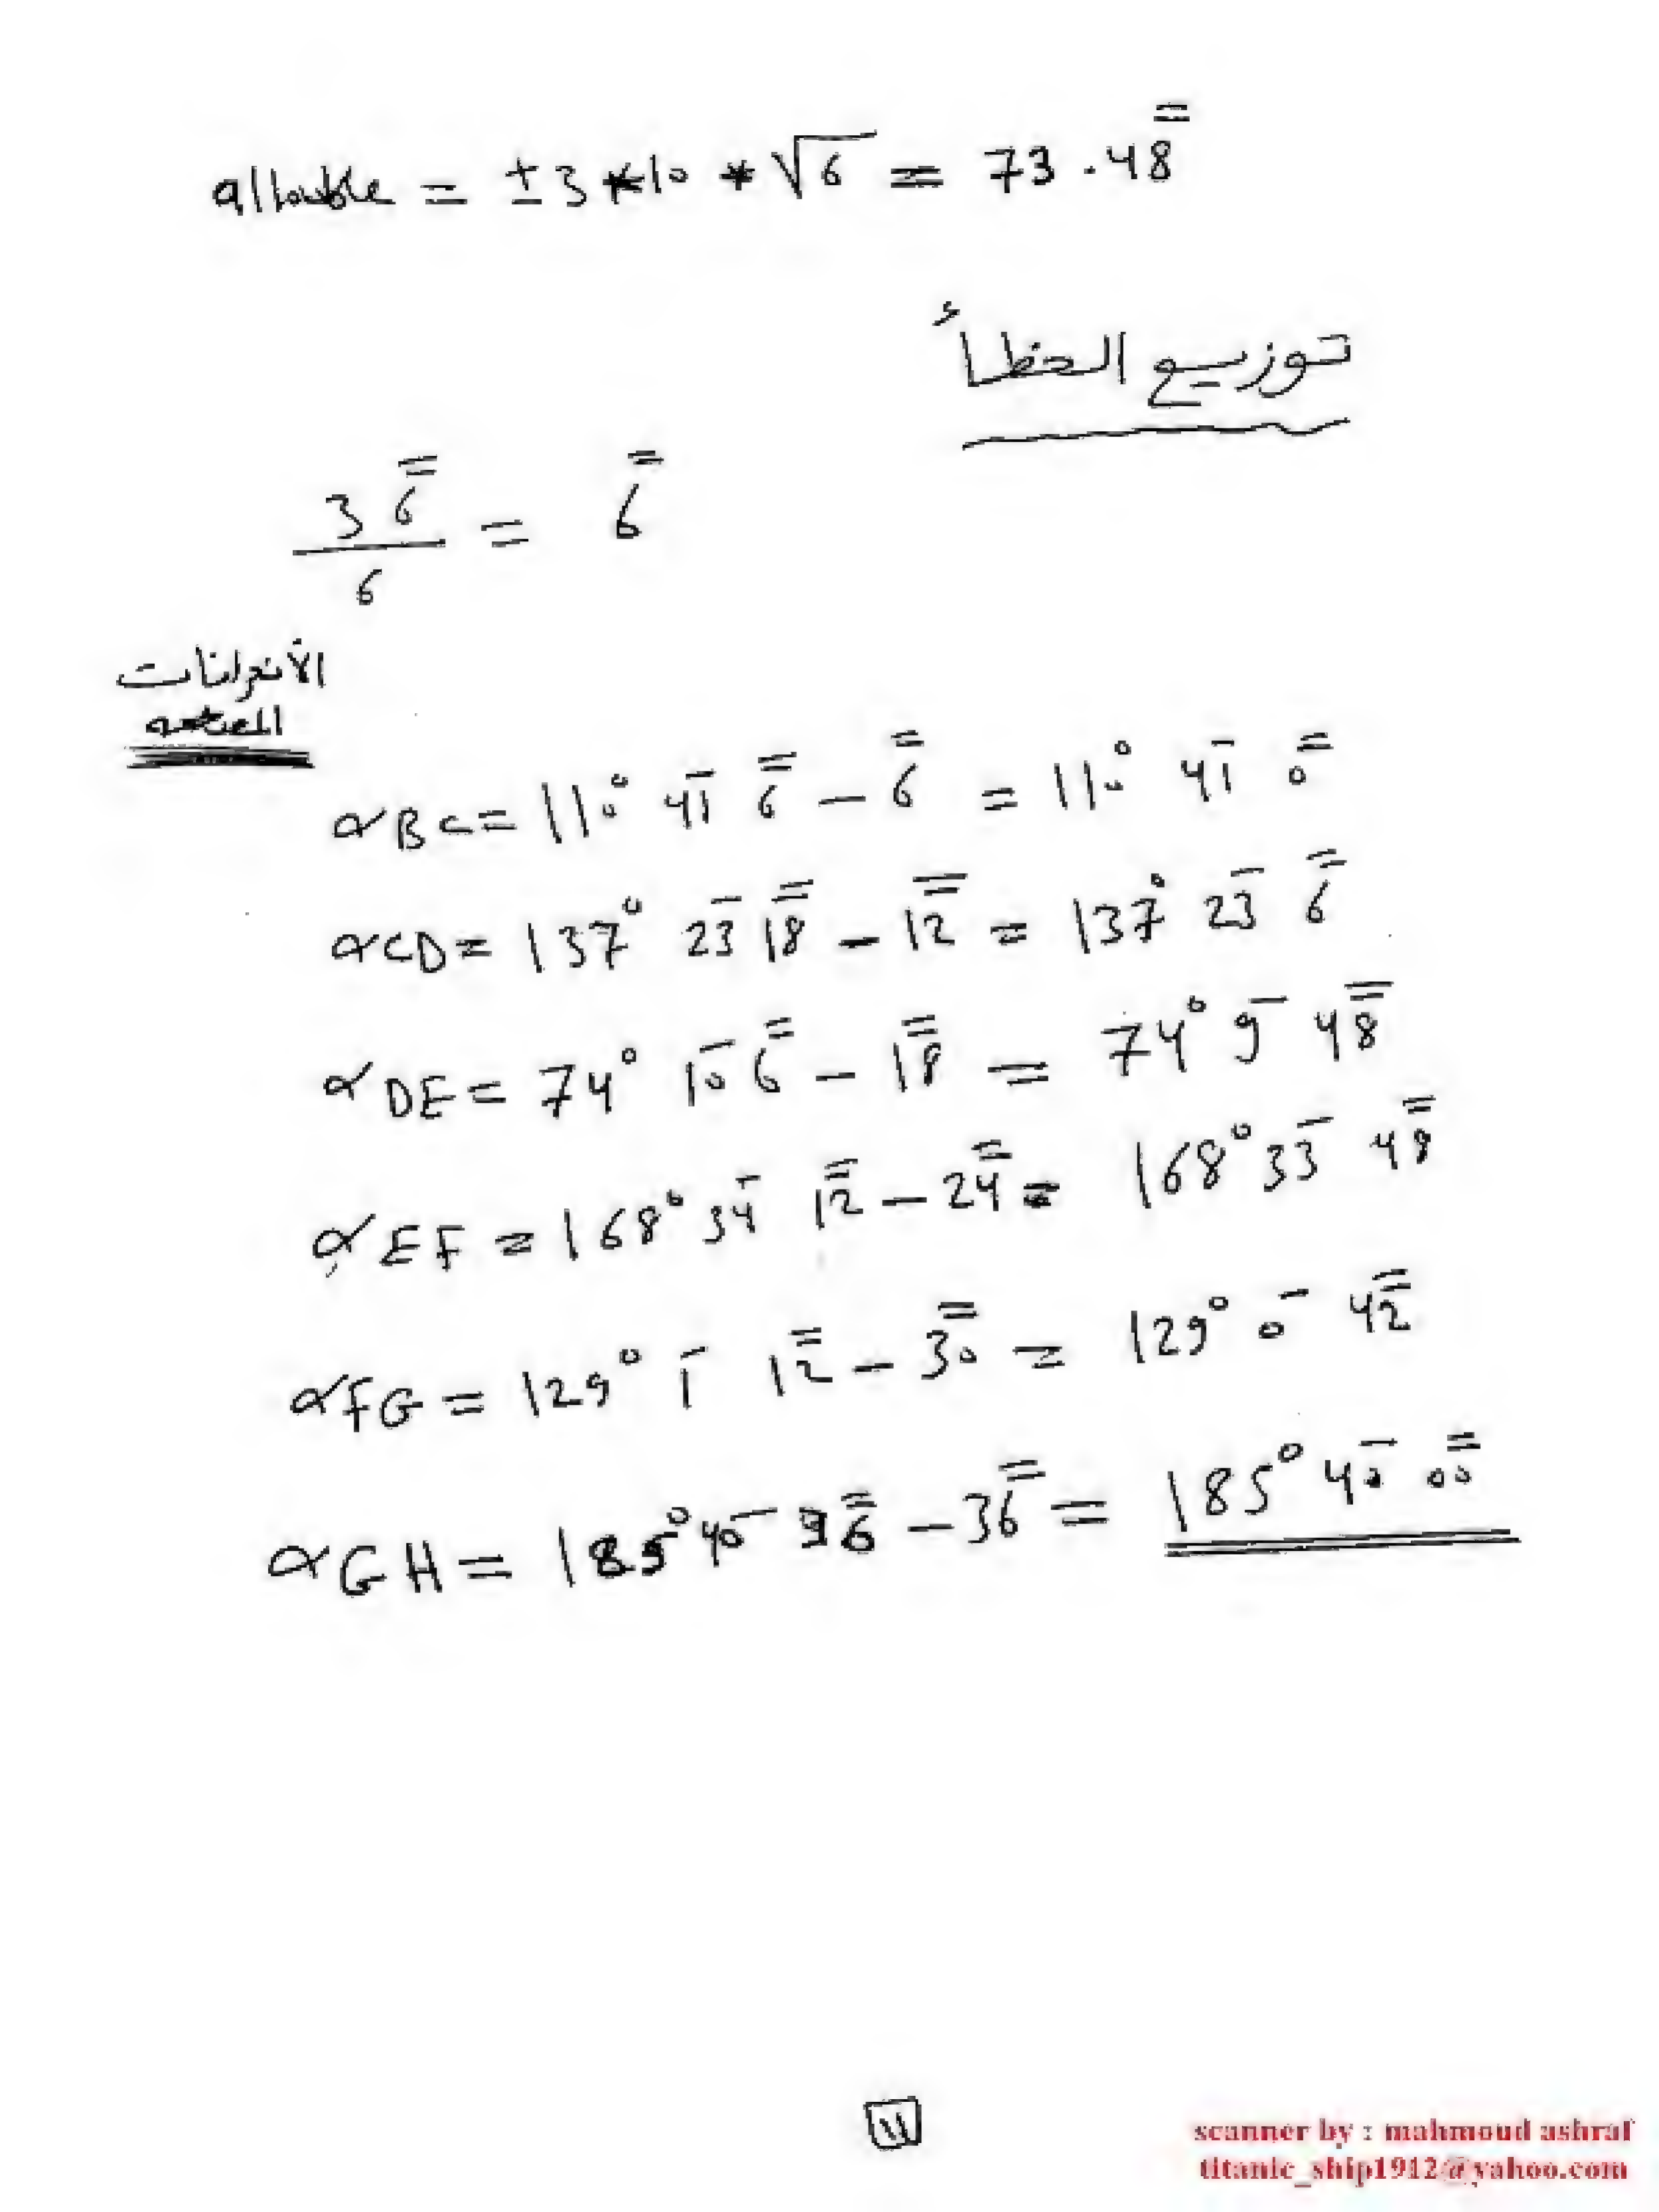 allowable = ±3*10*√6 = 73.48"
توزيع الخطأ
36"/6 = 6"
الانحرافات
المصححه
αBC = 110° 41' 6" - 6" = 110° 41' 0"
αCD = 137° 23' 18" - 12" = 137° 23' 6"
αDE = 74° 10' 6" - 18" = 74° 9' 48"
αEF = 168° 34' 12" - 24" = 168° 33' 48"
αFG = 129° 1' 12" - 30" = 129° 0' 42"
αGH = 185° 40' 36" - 36" = 185° 40' 00"
11
scanner by : mahmoud ashraf
titanic_ship1912@yahoo.com